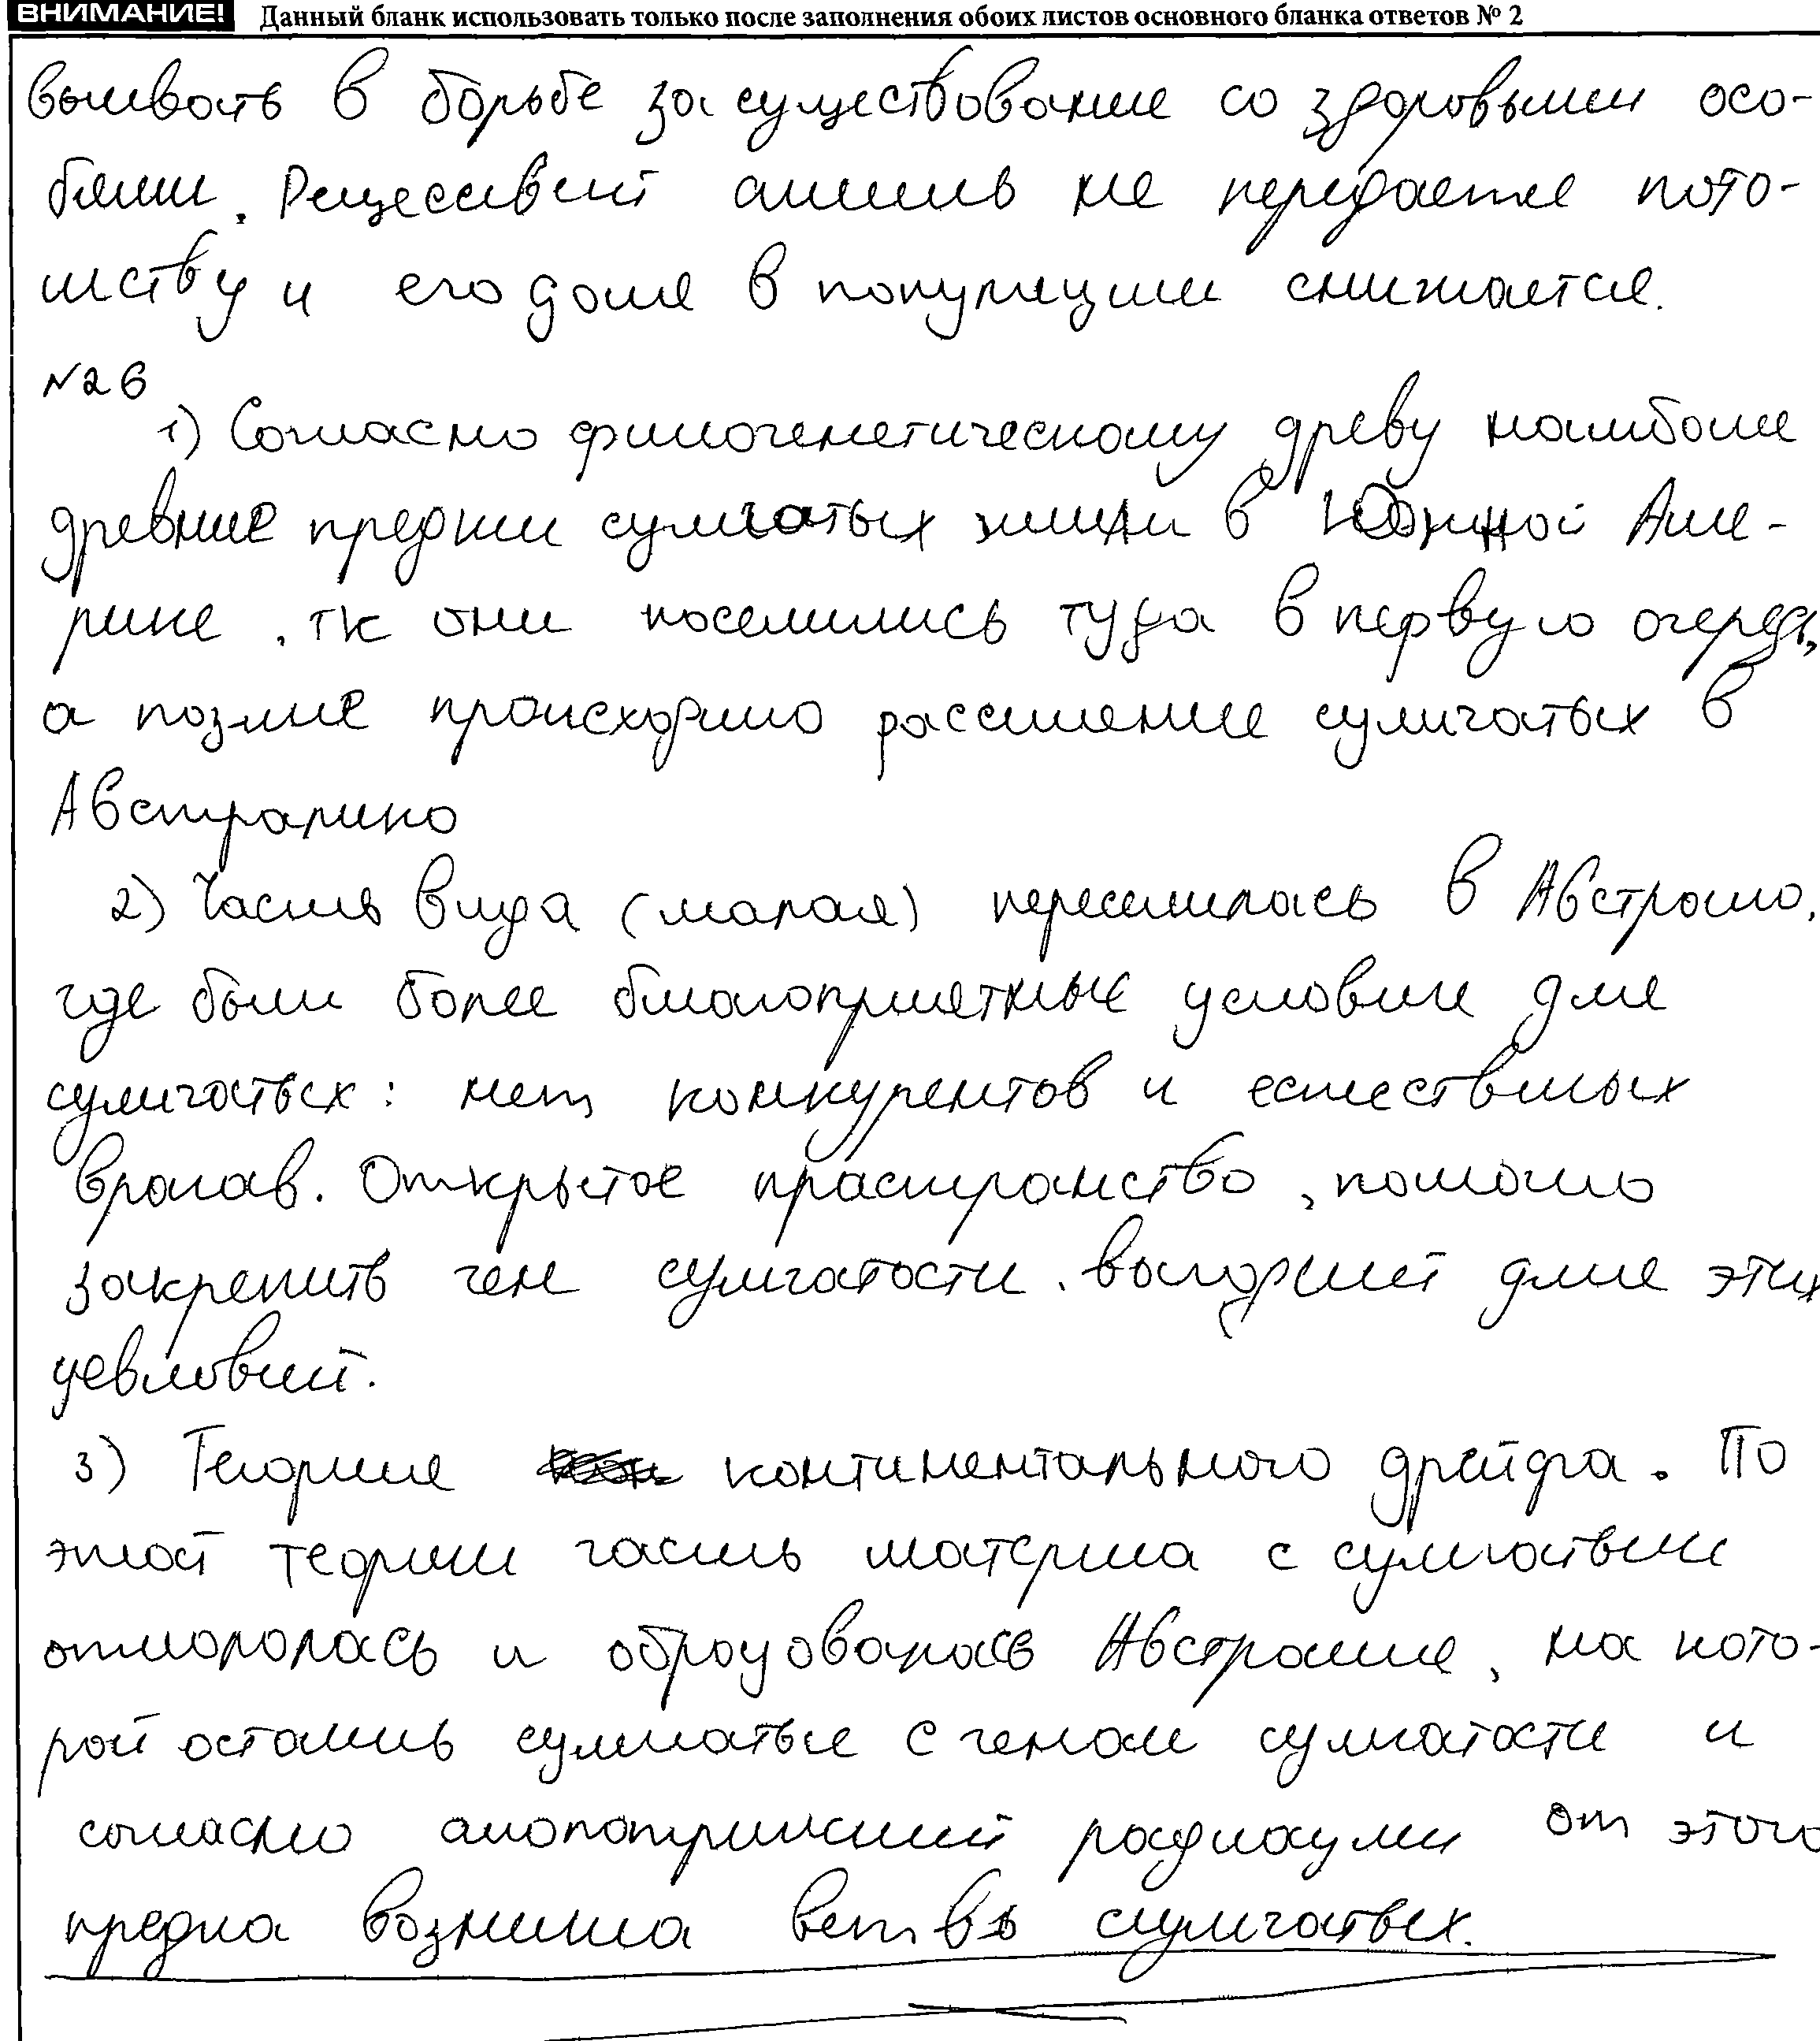 ВНИМАНИЕ! Данный бланк использовать только после заполнения обоих листов основного бланка ответов № 2
вынвать в борьбе за существование со здоровыми осо-
бями. Рецессивный аллель не передается пото-
мству и его доля в популяции снижается.
№26
1) Согласно филогенетическому древу наиболее
древние предки сумчатых жили в Южной Аме-
рике, тк они поселились туда в первую очередь,
а позже происходило расселение сумчатых в
Австралию
2) Часть вида (малая) переселилась в Австралию,
где были более благоприятные условия для
сумчатых: нет конкурентов и естественных
врагов. Открытое пространство, помогло
закрепить ген сумчатости, выгодный для этих
усвловий.
3) Теория континентального дрейфа. По
этой теории часть материка с сумчатыми
откололась и образовалась Австралия, на кото-
рой остались сумчатые с геном сумчатости и
согласно радиации от этого
предка возникла ветвь сумчатых.